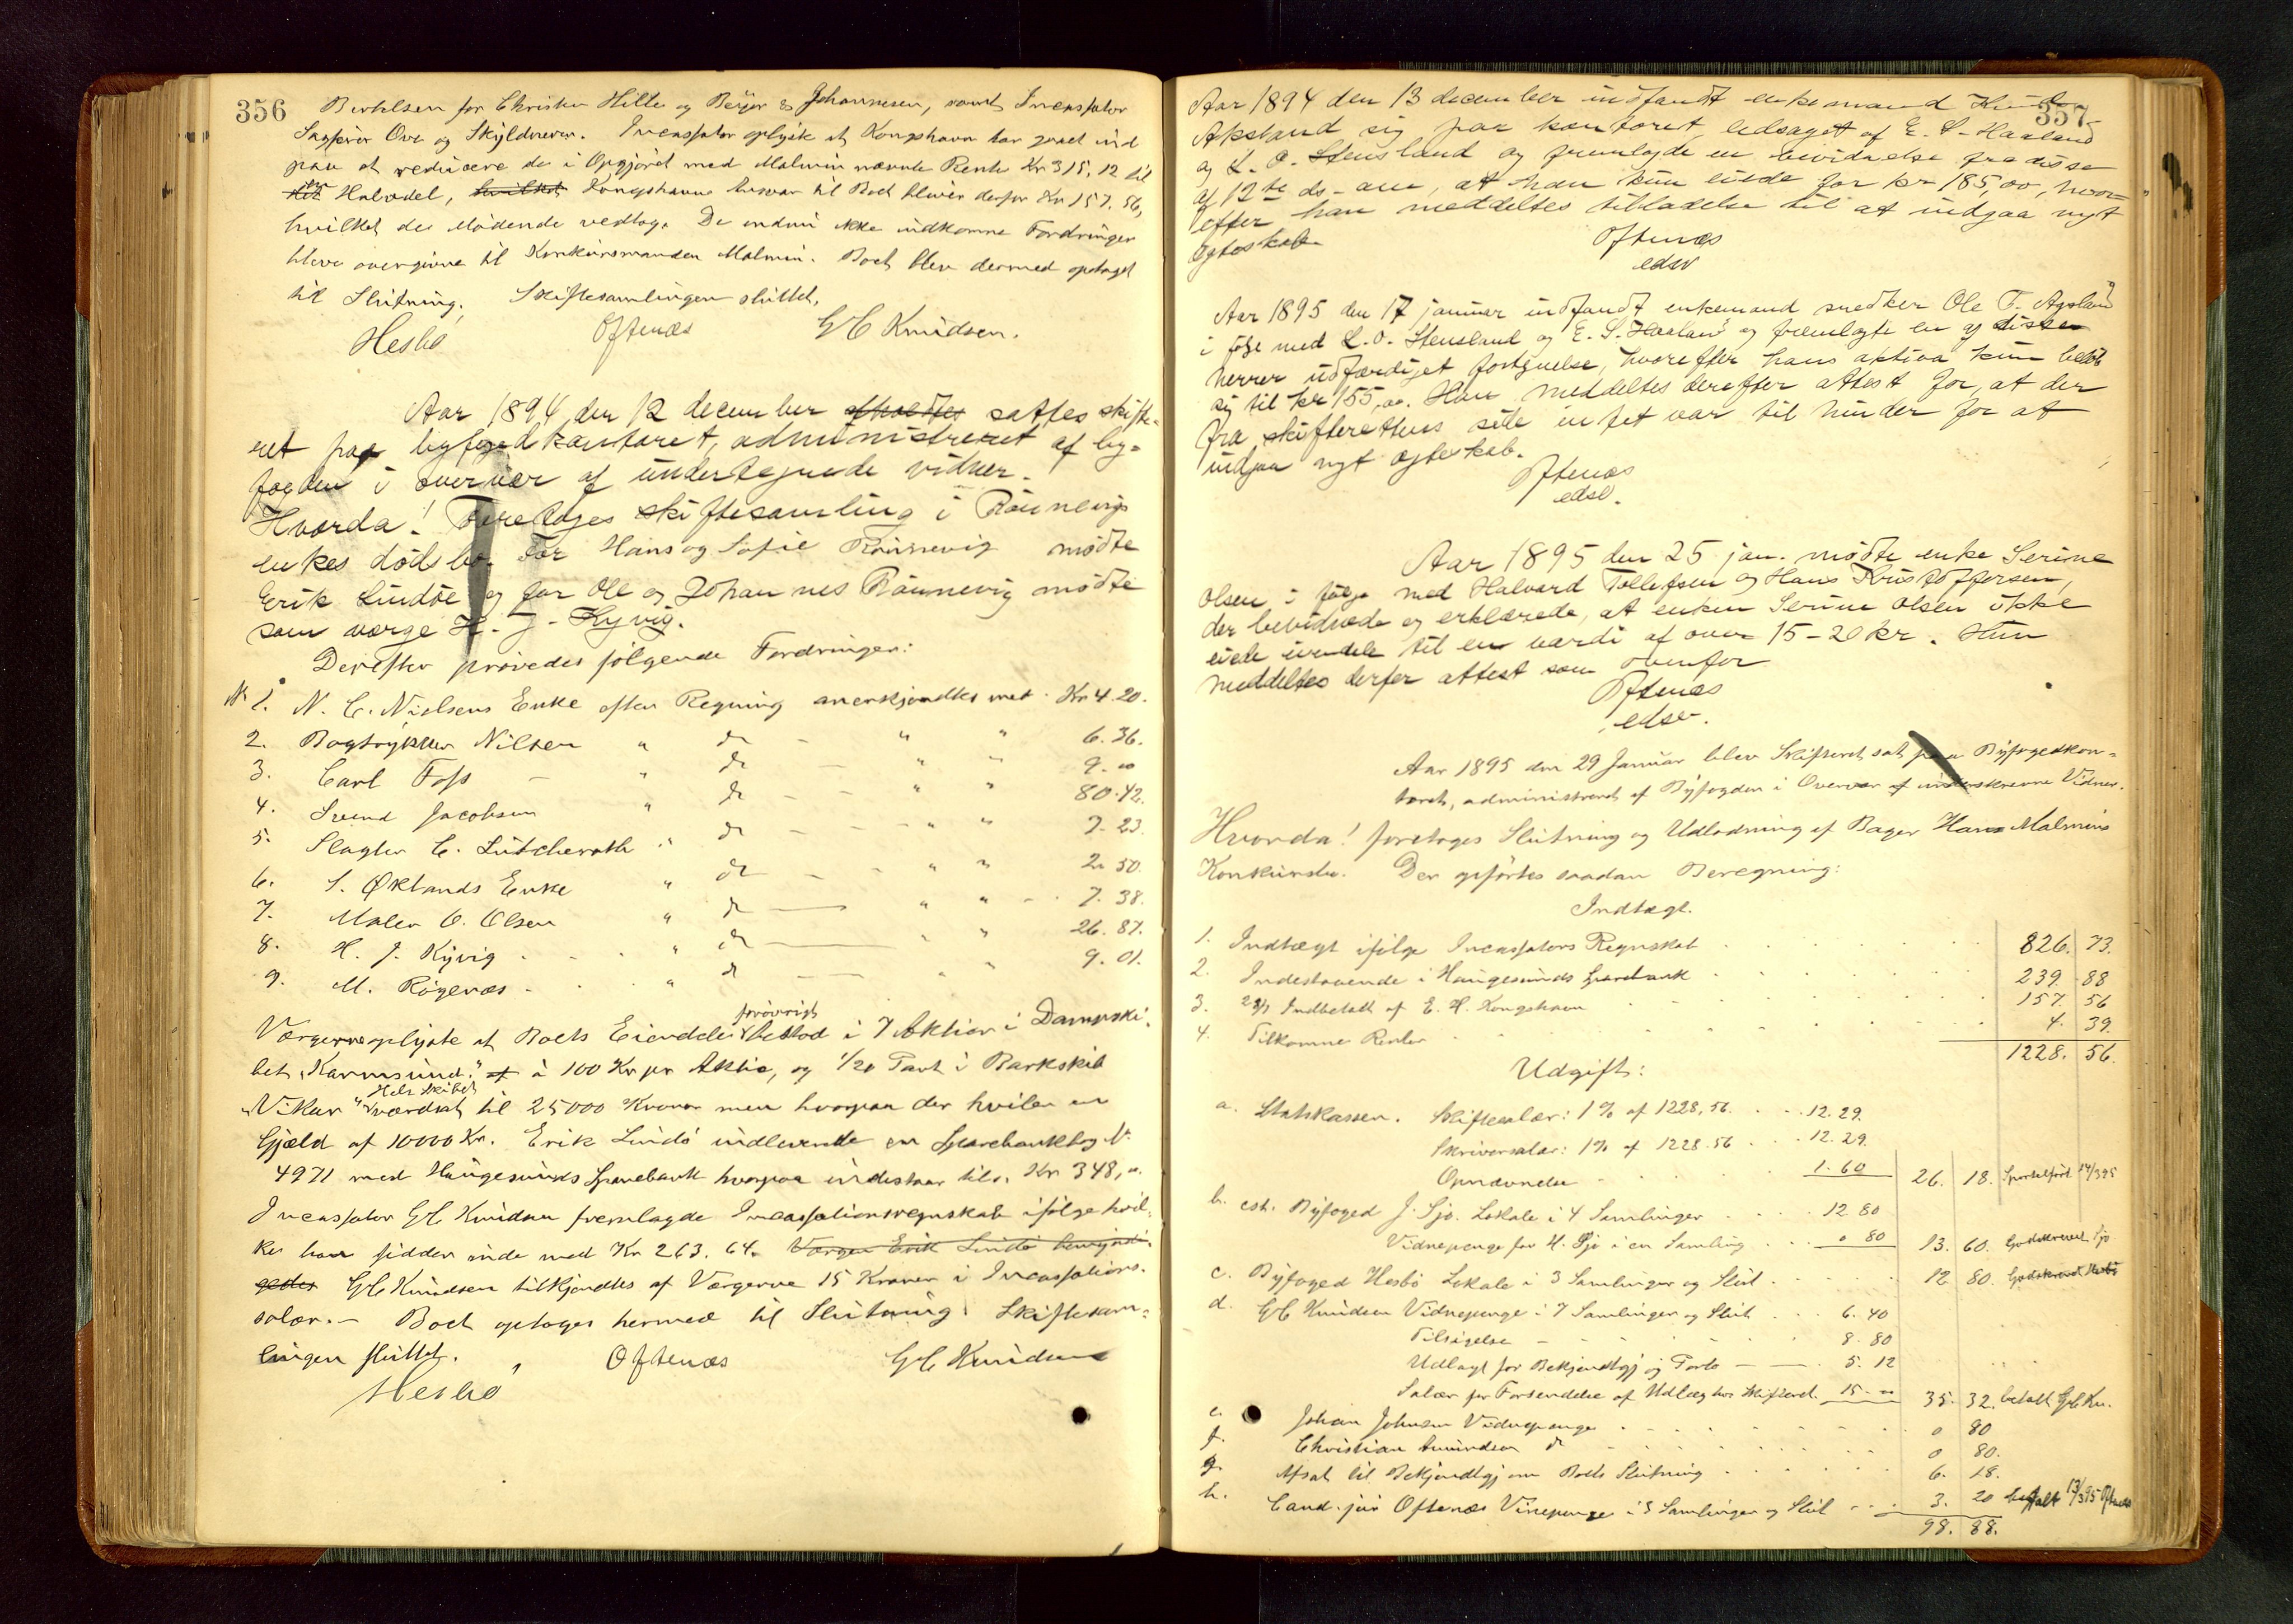 356
Berthelsen for Christen Hille og Beyer & Johannesen, samt Incassator
Sagfører Ove og Skyldneren. Incassator oplyste at Kongshavn har gaaet ind
paa at reducere de i Opgjøret med Malmin nævnte Renter Kr 315,12 til
det Halvdel, hvilket Kongshavns Ansvar til Boet bliver derfor Kr 157.56,
hvilket de Mødende vedtog. De endnu ikke indkomne Fordringer
bleve overgivne til Konkursmanden Malmin. Boet blev dermed optaget
til Slutning. Skiftesamlingen sluttet.
Hesbö Oftenæs GC Knudsen.
Aar 1894 den 12 december afholdtes sattes skifte-
ret paa byfogedkontoret, administreret af by-
fogden i overvær af undertegnede vidner.
Hvorda! Foretages skiftesamling i Rönnevigs
enkes dødsbo. For Hans og Sofie Rönnevig mödte
Erik Lindöe og for Ole og Johannes Rönnevig mödte
som værge H. J. Kyvig.
Derefter prövedes følgende Fordringer:
No 1. N. C. Nielsens Enke efter Regning anerkjendtes med Kr 4.20.
2. Bogtrykker Nilsen " do - " " 6.36.
3. Carl Foss - " do - " " 9.00
4. Svend Jacobsen " do - - " " 80.42.
5. Slagter C. Lütcherath " do - - " " 7.23.
6. S. Øklands Enke " do - - " " 2.50.
7. Maler O. Olsen " do - " " 7.38.
8. H. J. Kyvig " do - " " 26.87.
9. M. Rögenæs " do - " " 9.01.
forövrigt
Værgerne oplyste at Boets Eiendele bestod i 7 Aktier i Dampski-
bet "Karmsund" af à 100 Kr pr Aktie, og 1/20 Part i Barkskib
Hele Skibet
"Vikar" værdsat til 25000 Kroner men hvorpaa der hviler en
Gjæld af 10000 Kr. Erik Lindö indleverede en Sparebankbog No
4971 med Haugesunds Sparebank hvorpaa indestaar tils. Kr 348,00.
Incassator GC Knudsen fremlagde Incassationsregnskab ifölge hvil-
ket han sidder inde med Kr 263.64. Værgen Erik Lindö bemyndi-
gedes GC Knudsen tilkjendtes af Værgerne 15 Kroner i Incassations-
salær. - Boet optages hermed til Slutning. Skiftesam-
lingen sluttet.
Hesbö Oftenæs GC Knudsen
357
Aar 1894 den 13 december indfandt enkemand Knud
Aksland sig paa kontoret, ledsaget af E. S. Haaland
og L. O. Stensland og fremlagde en bevidnelse fra disse
af 12te ds. om, at han kun eiede for kr 185,00, hvor-
efter han meddeltes tilladelse til at indgaa nyt
ægteskab.
Oftenæs
edsv
Aar 1895 den 17 januar indfandt enkemand snedker Ole T. Apeland
i følge med L. O. Stensland og E. S. Haaland og fremlagte en af disse
herrer udfærdiget fortegnelse, hvorefter hans aktiva kun beløb
sig til kr 155,00. Han meddeltes derefter attest for, at der
fra skifterettens side intet var til hinder for at
indgaa nyt ægteskab.
Oftenæs
edsv.
Aar 1895 den 25 jan. mödte enke Serine
Olsen i følge med Halvard Tollefsen og Hans Kristoffersen,
der bevidnede og erklærede, at enken Serine Olsen ikke
eiede eiendele til en værdi af over 15-20 kr. Hun
meddeltes derfor attest som ovenfor
Oftenæs
edsv.
Aar 1895 den 29 Januar blev Skifteret sat paa Byfogedkon-
toret, administreret af Byfogden i Overvær af underskrevne Vidner.
Hvorda! foretoges Slutning og Udlodning af Bager Hans Malmins
Konkursbo. Der opførtes saadan Beregning:
Indtægt.
1. Indtægt ifölge Incassators Regnskab 826. 73.
2. Indestaaende i Haugesunds Sparebank 239. 88
3. 29/1 Indbetalt af E. H. Kongshavn 157. 56
4. Tilkomne Renter 4. 39.
1228. 56.
Udgift:
a. Statskassen. Skiftesalær: 1% af 1228,56. 12.29.
Skriversalær: 1% af 1228.56 12.29.
Opnævnelse 1.60 26. 18. Sportelført 14/3 95
b. cst. Byfoged J. Sjo. Lokale i 4 Samlinger 12 80
Vidnepenge for H. Sjo i en Samling 0 80 13. 60. Godskrevet Sjo
c. Byfoged Hesbö Lokale i 3 Samlinger og Slut 12 80. Godskrevet Hesbö
d. GC Knudsen Vidnepenge i 7 Samlinger og Slut 6.40
Tilsigelse 8.80
Udlagt for Bekjendtgj og Porto 5.12
Salær for Forsendelse af Udlæg hos Skifteret 15.00 35. 32. betalt GC Kn.
e. Johan Johnsen Vidnepenge 0 80
f. Christian Amundsen do 0 80.
g. Afsat til Bekjendtgj om Boets Slutning 6. 18.
h. Cand. jur Oftenæs Vinepenge i 3 Samlinger og Slut 3. 20 betalt 13/3 95 Oftenæs
98. 88.